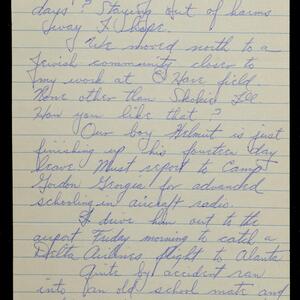 days? Staying out of harms
way I hope.
We moved north to a
Jewish community closer to
my work at O Hare field.
None other than Skokie Ill
How you like that?
Our boy Helmut is just
finishing up his fourteen day
leave Must report to Camp
Gordon Georgia for advanced
schooling in aircraft radio.
I drive him out to the
airport Friday morning to catch a
Delta Airlines flight to Atlanta
Quite by accident ran
into an old school mate and